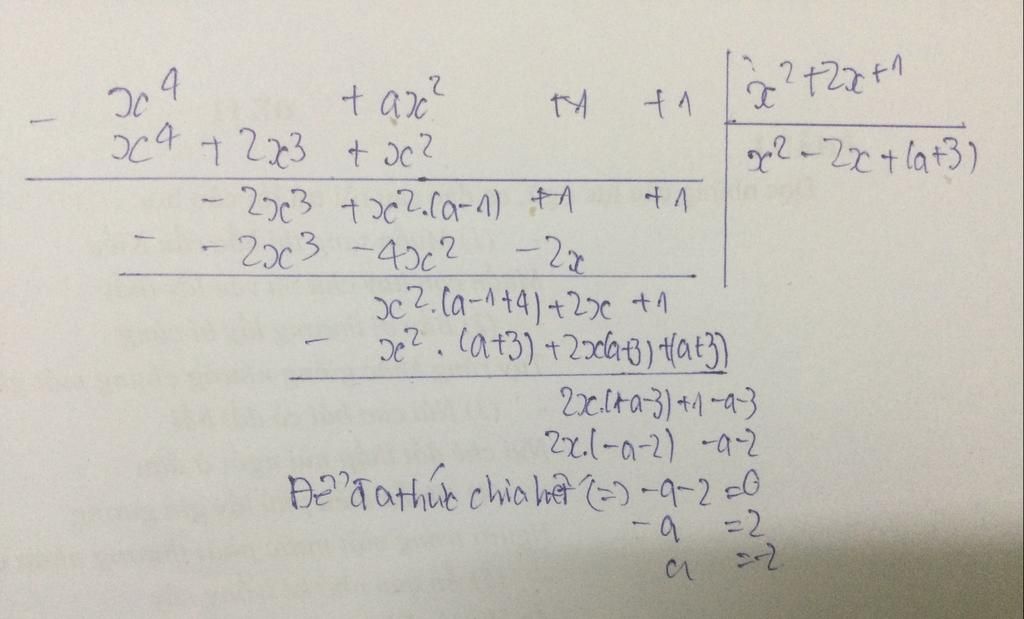 - x⁴ + ax² +1 +1 | x²+2x+1
x⁴ + 2x³ + x² | x² - 2x + (a+3)
- 2x³ + x².(a-1) +1 +1
- - 2x³ - 4x² - 2x
x².(a-1+4)+2x +1
- x².(a+3)+2x(a+3)+(a+3)
2x.(1-a-3)+1-a-3
2x.(-a-2) -a-2
Để đa thức chia hết (=) -a-2 =0
-a =2
a =-2